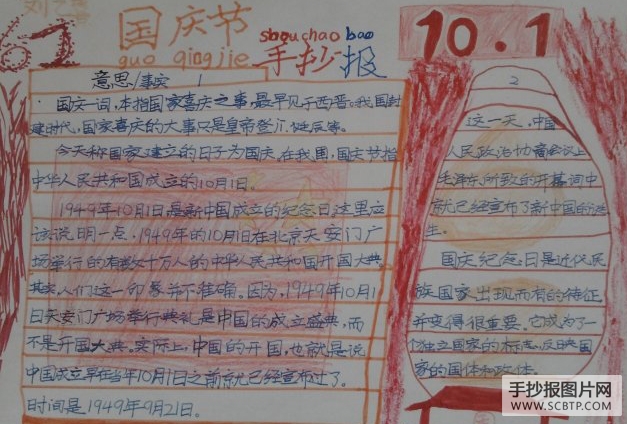 国庆节
guo qingjie
shouchaobao
手抄报
10.1
意思/事实 1
国庆一词,本指国家喜庆之事,最早见于西晋。我国封
建时代,国家喜庆的大事只是皇帝登、诞辰等。
今天称国家建立的日子为国庆。在我国,国庆节指
中华人民共和国成立的10月1日。
1949年10月1日是新中国成立的纪念日这里应
该说明一点,1949年的10月1日在北京天安门广
场举行的有数十万人的中华人民共和国开国大典
其实,人们这一印象并不准确。因为,1949年10月1
日天安门广场举行典礼是中国的成立盛典,而
不是开国大典。实际上,中国的开国,也就是说
中国成立早在当年10月1日之前就已经宣布过了。
时间是1949年9月21日。
2
这一天,中国
人民政治协商会议上
毛泽东所致的开幕词中
就已经宣布了新中国的诞
生。
国庆纪念日是近代民
族国家出现而有的特征
并变得很重要。它成为了一
个独立国家的标志,反映国
家的国体和政体。
手抄报图片网
WWW.SCBTP.COM